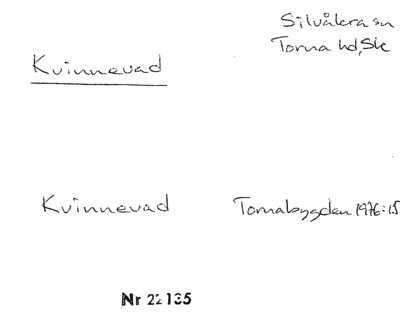 Silvåkra sn
Torna hd, Sk
Kvinnevad
Kvinnevad Tornabygden 1976:15
Nr 22135